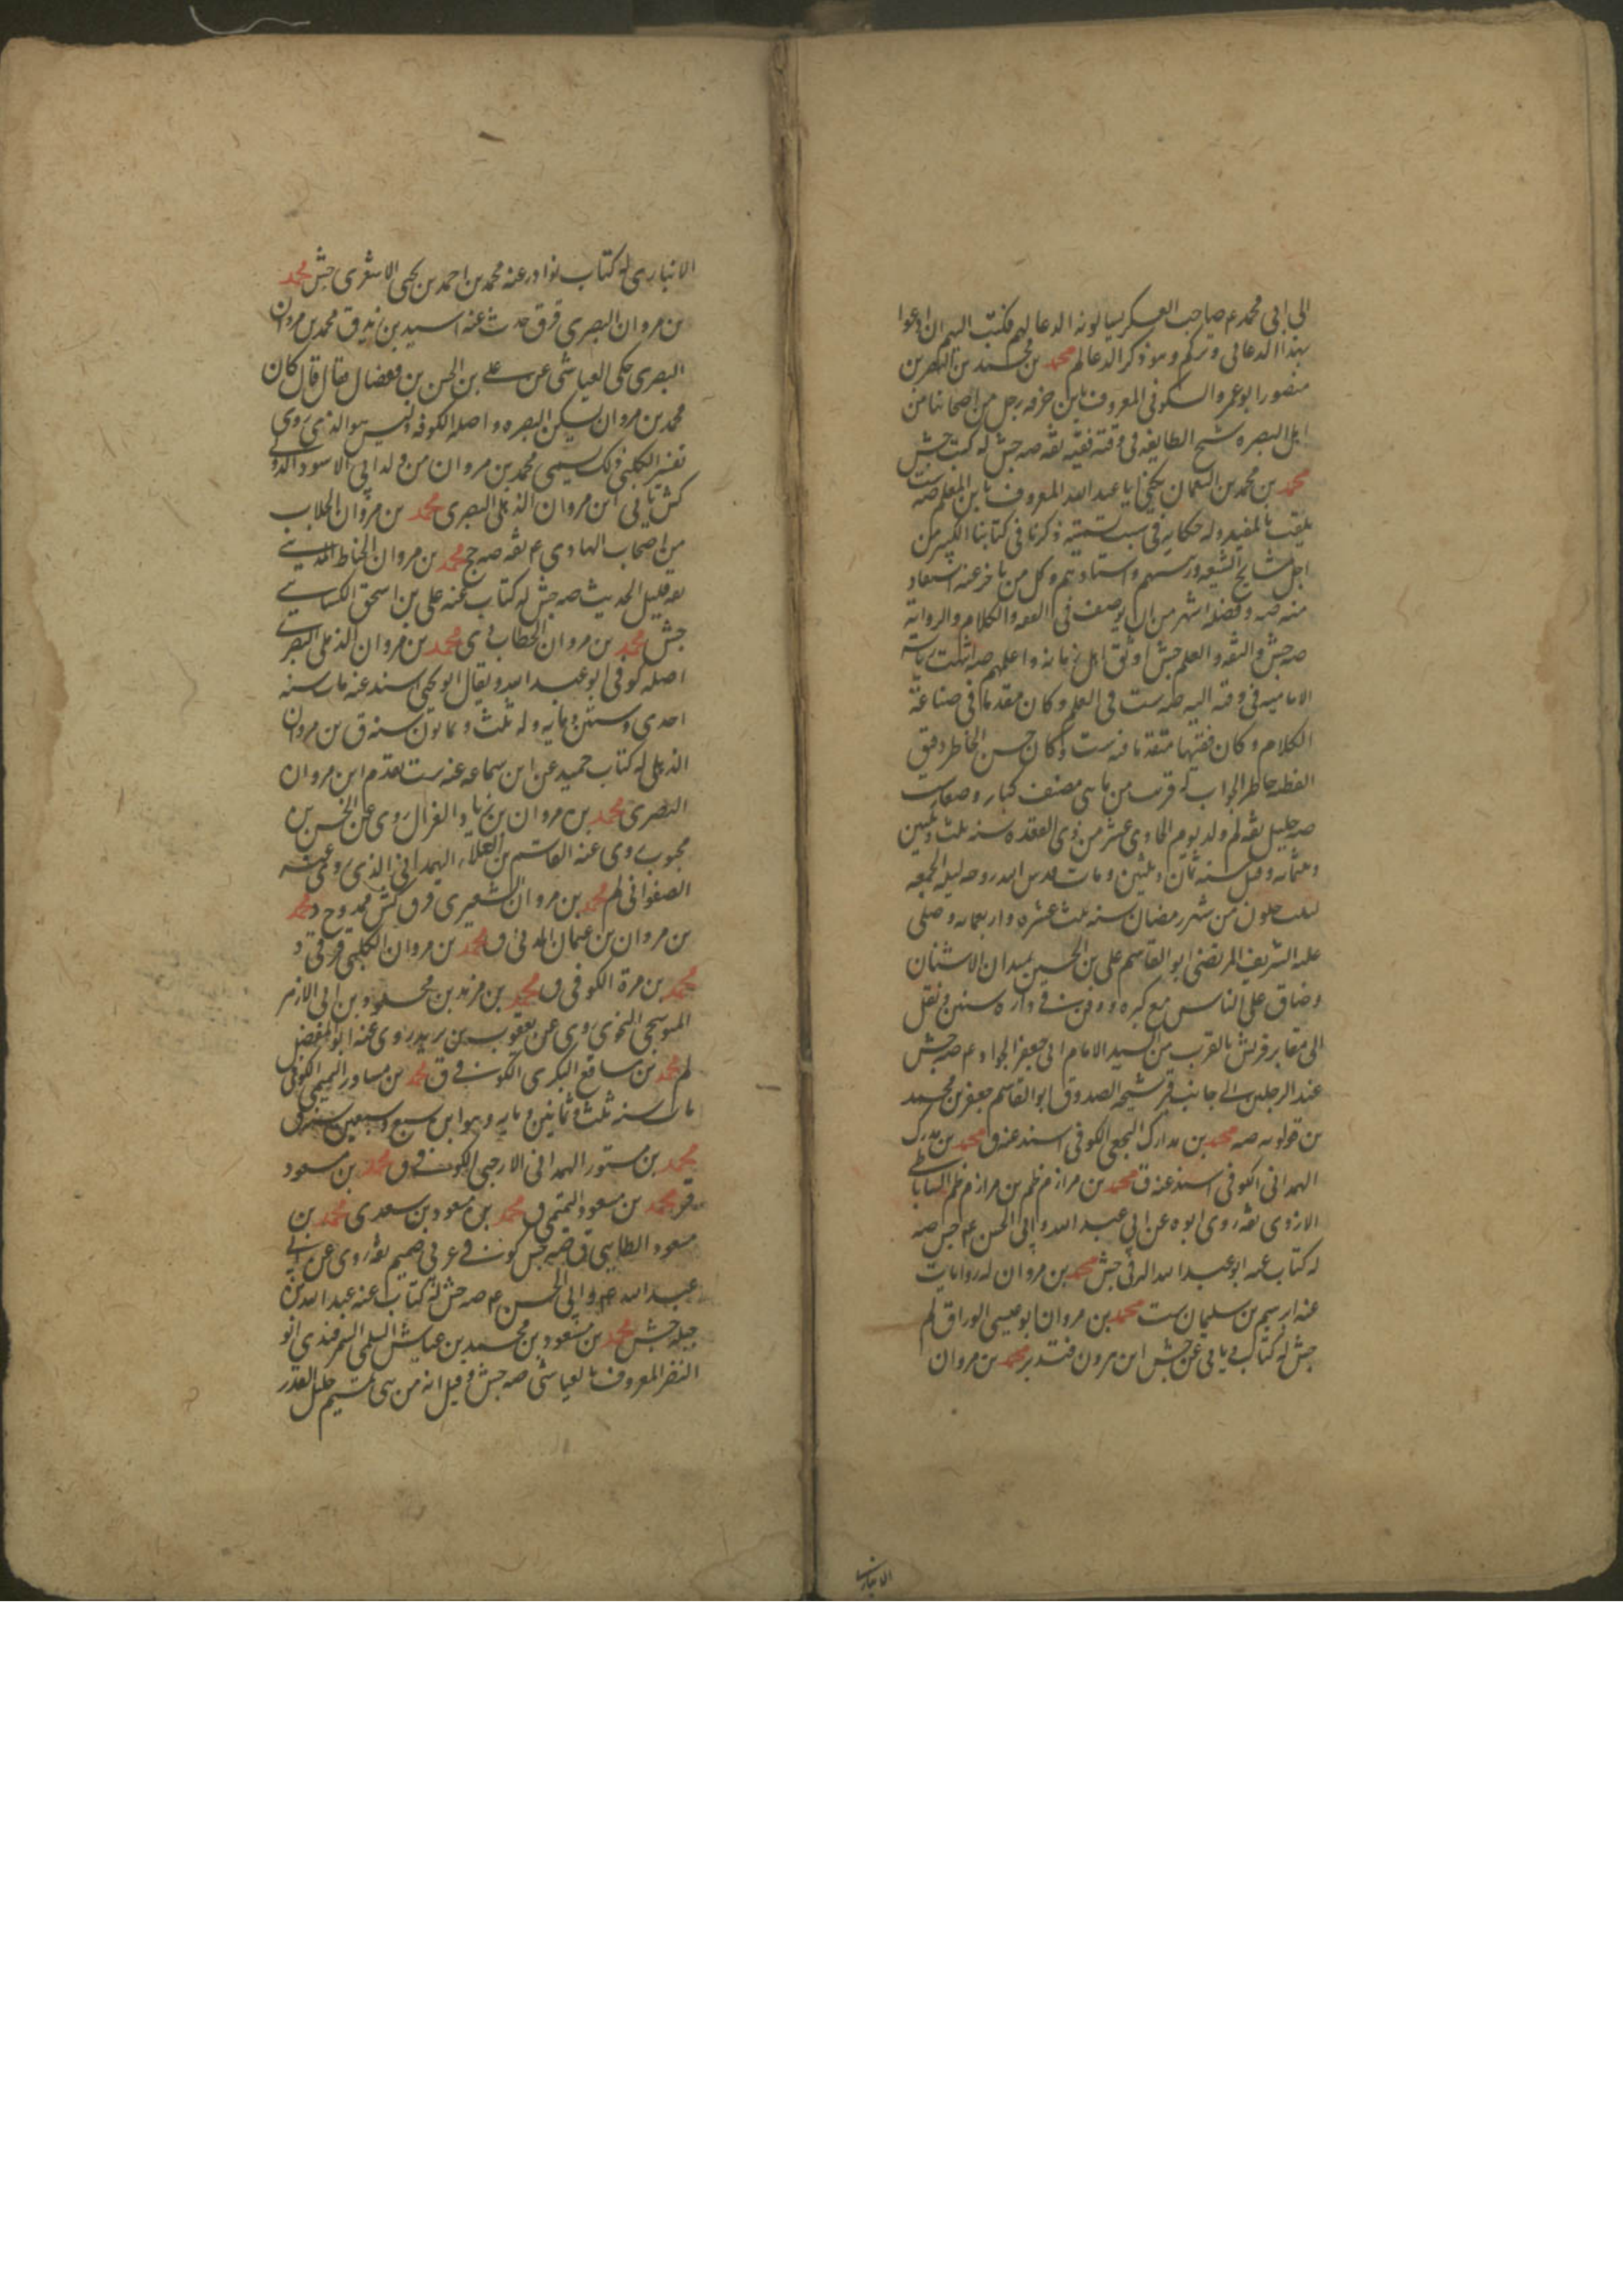 الى ابى محمد ع صاحب العسكر يسالونه الدعا لهم فكتب اليهم ان ادعوا
بهذا الدعا لى ولكم وهو ذكر الدعا لم محمد بن محمد بن النضر بن
منصور ابو عمرو السكونى المعروف بابن خرقه رجل من اصحابنا من
اهل البصره شيخ الطايفه فى وقته فقيه ثقه صه جش له كتب جش
محمد بن محمد بن النعمان يكنى ابا عبد الله المعروف بابن المعلم صه ست
يلقب بالمفيد وله حكايه فى سبب تسميته ذكرنا فى كتابنا الكبير من
اجل مشايخ الشيعه ورئيسهم واستادهم وكل من تاخر عنه استفاد
منه صه وفضله اشهر من ان يوصف فى الفقه والكلام والروايه
صه جش والثقه والعلم جش اوثق اهل زمانه واعلمهم صه انتهت رياسه
الاماميه فى وقته اليه صه ست فى العلم وكان مقدما فى صناعة
الكلام وكان فقيها متقدما فيه ست وكان حسن الخاطر دقيق
الفطنه حاضر الجواب له قريب من ماتى مصنف كبار وصغار ست
صه جليل ثقه لم ولد يوم الحادى عشر من ذى القعده سنه ثلث وثلثين
وثلثمائه وقيل سنه ثمان وثلثين ومات قدس الله روحه ليله الجمعه
لثلث خلون من شهر رمضان سنه ثلث عشره واربعمائه وصلى
عليه الشريف المرتضى ابو القاسم على بن الحسين بميدان الاشنان
وضاق على الناس مع كبره ودفن فى داره سنين ونقل
الى مقابر قريش بالقرب من السيد الامام ابى جعفر الجواد ع صه جش
عند الرجلين الى جانب قبر شيخه الصدوق ابو القاسم جعفر بن محمد
بن قولويه صه محمد بن مدارك النخعى الكوفى اسند عنه ق محمد بن مدرك
الهمدانى الكوفى اسند عنه ق محمد بن مرازم ظم بن مرازم ظم الساباطى
الازدى ثقه روى ابوه عن ابى عبد الله وابى الحسن ع جش صه
له كتاب عنه ابو عبد الله البرقى جش محمد بن مروان له روايات
عنه ابرهيم بن سليمان ست محمد بن مروان ابو عيسى الوراق لم
جش له كتاب وياتى عن جش ابن هرون فتدبر محمد بن مروان
الانبارى
الانبارى له كتاب نوادر عنه محمد بن احمد بن يحيى الاشعرى جش محمد
بن مروان البصرى قر ق حدث عنه اسيد بن زيد ق محمد بن مروان
البصرى حكى العياشى عن على بن الحسن بن فضال فقال قال كان
محمد بن مروان يسكن البصره واصله الكوفه وليس هو الذى روى
تفسير الكلبى ذلك يسمى محمد بن مروان من ولد ابى الاسود الدؤلى
كش ياتى ابن مروان الذهلى البصرى محمد بن مروان الجلاب
من اصحاب الهادى ع ثقه صه ج محمد بن مروان الحناط المدينى
ثقه قليل الحديث صه جش له كتاب عنه على بن اسحق الكسائى
جش محمد بن مروان الخطاب دى محمد بن مروان الذهلى البصرى
اصله كوفى ابو عبد الله ويقال ابو يحيى اسند عنه مات سنه
احدى وستين ومايه وله ثلث وثمانون سنه ق بن مروان
الذهلى له كتاب حميد عن ابن سماعه عنه ست تقدم ابن مروان
البصرى محمد بن مروان بن زياد الغزال روى عن الحسن بن
محبوب روى عنه القاسم بن العلاء الهمدانى الذى روى عنه
الصفوانى لم محمد بن مروان الشعيرى قر ق كش ممدوح د محمد
بن مروان بن عثمان المدنى ق محمد بن مروان الكلبى قر قى د
محمد بن مرة الكوفى ق محمد بن مزيد بن محمود بن ابى الازهر
البوسنجى النحوى روى عن يعقوب بن يزيد روى عنه ابو المفضل
لم محمد بن سافع البكرى الكوفى ق محمد بن مساور التميمى الكوفى
مات سنه ثلث وثمانين ومايه وهو ابن سبع وسبعين سنه ق
محمد بن مستور الهمدانى الارحبى الكوفى ق محمد بن مسعود
قر محمد بن مسعود التميمى ق محمد بن مسعود بن سعد ى محمد بن
مسعود الطايى ق صه جش كوفى عربى صميم ثقه روى عن ابى
عبد الله ع وابى الحسن ع صه جش له كتاب عنه عبد الله بن
جبله جش محمد بن مسعود بن محمد بن عياش السلمى السمرقندى ابو
النضر المعروف بالعياشى صه جش وقيل انه من بنى تميم جليل القدر